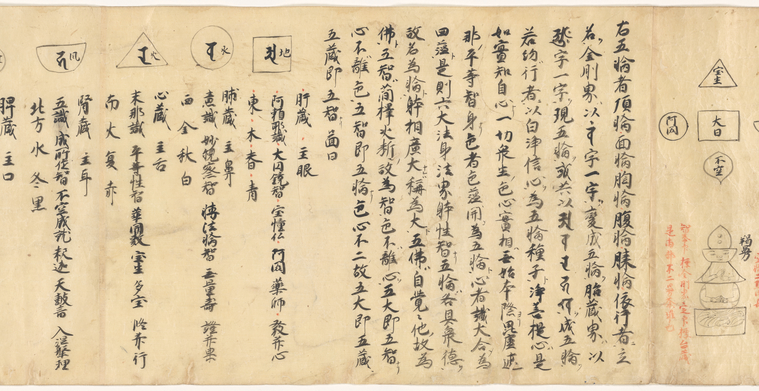 宝生
大日
阿閦
不空
右五輪者頂輪面輪胸輪腹輪膝輪依行者立
金剛界以字一字変成五輪胎蔵界以
字一字現五輪或共以成五輪
若約行者以白浄信心為五輪種子浄菩提心是
如実知自心一切衆生色心実相無始本際毘盧遮
那平等智身色者色蘊開為五輪心者識大合為
四蘊是則六大法身法界体性智五輪各具衆徳
故名為輪体相広大称為大五佛自覚々他故為
佛五智簡擇决断故為智色不離心五大即五智
心不離色五智即五輪色心不二故五大即五蔵
五蔵即五智 啚曰
地
肝蔵 主眼
阿頼耶識 大円鏡智 宝幢仏 阿閦 薬師 発菩心
東 木 春 青
肺蔵 主鼻
意識 妙観察智 転法輪智 無量寿 證菩果
西 金 秋 白
火
心蔵 主舌
末那識 平等性智 華開敷 宝生 多宝 修菩行
南 火 夏 赤
風
腎蔵 主耳
五識 成所作智 不空成就 釈迦 天鼓音 入涅槃理
北方 水 冬 黒
脾蔵 主口